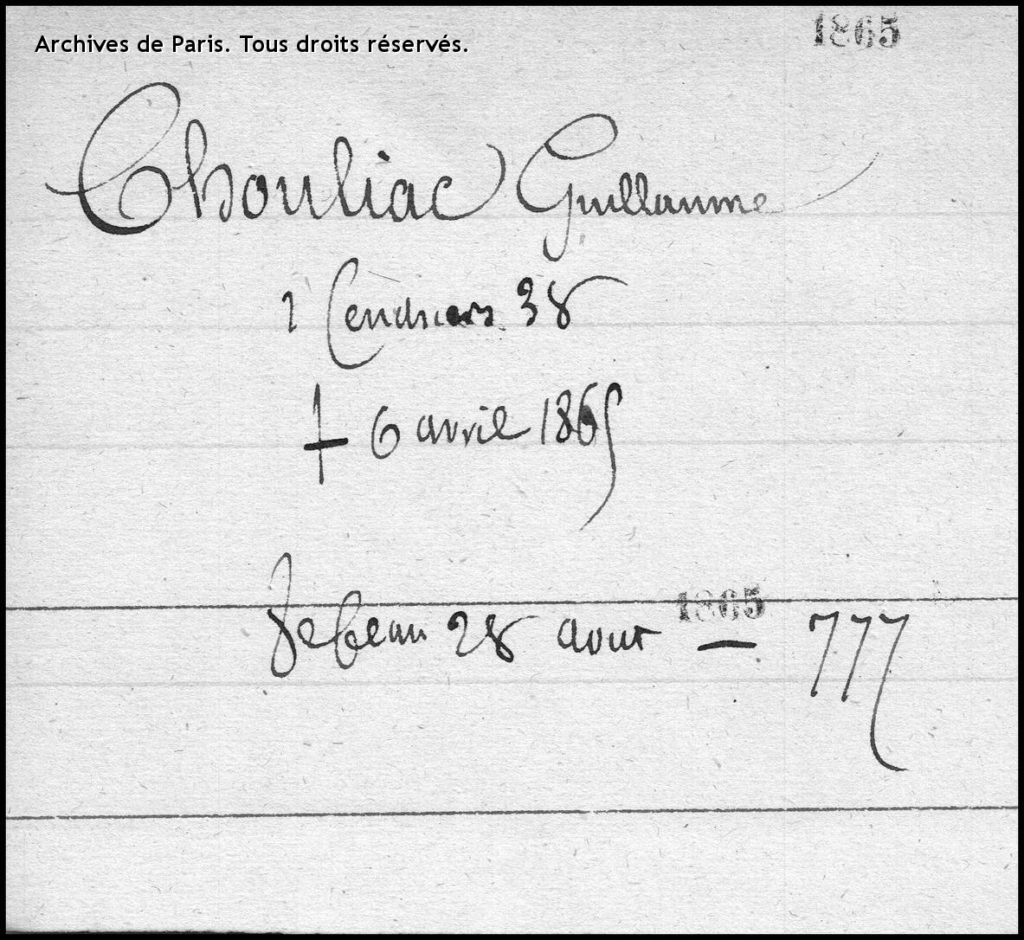 1865
Archives de Paris. Tous droits réservés.
Chouliac Guillaume
r Cendriers 38
† 6 avril 1865
1865
28 aout — 777